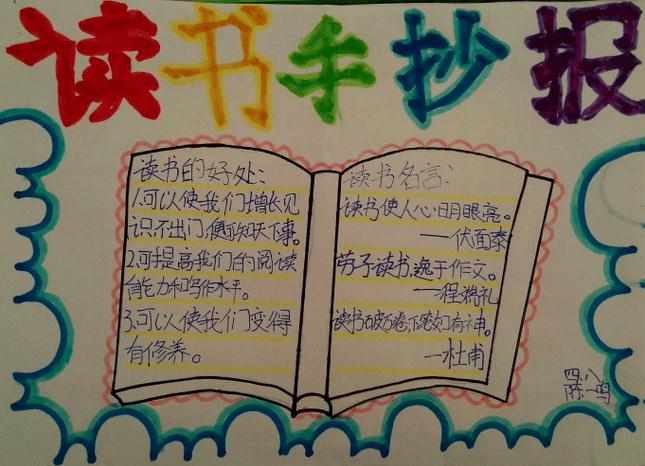 读书手抄报
读书的好处：
1.可以使我们增长见
识，不出门，便可知天下事。
2.可提高我们的阅读
能力和写作水平。
3.可以使我们变得
有修养。
读书名言：
读书使人心明眼亮。
——伏面泰
劳于读书，逸于作文。
——程端礼
读书破万卷，下笔如有神。
—杜甫
四、八
陈一鸣